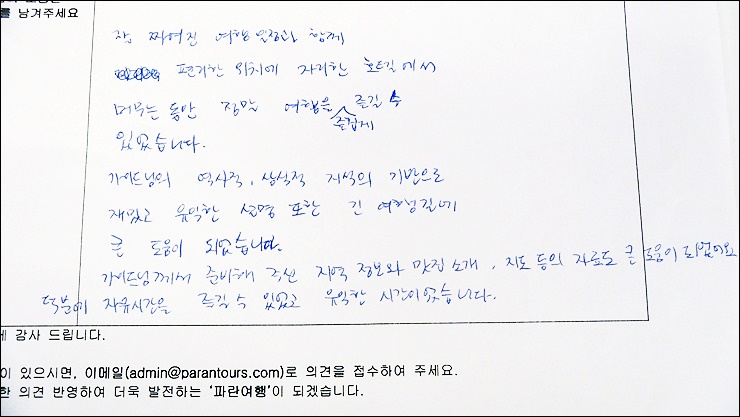 를 남겨주세요
잘 짜여진 여행 일정과 함께
편리한 위치에 자리한 호텔에서
머무는 동안 정말 여행을 즐길 수
즐겁게
있었습니다.
가이드님의 역사적, 상식적 지식의 기반으로
재밌고 유익한 설명 또한 긴 여행길에
큰 도움이 되었습니다.
가이드님께서 준비해 주신 지역 정보와 맛집 소개, 지도 등의 자료도 큰 도움이 되었어요
덕분에 자유시간을 즐길 수 있었고 유익한 시간이었습니다.
게 감사 드립니다.
이 있으시면, 이메일(admin@parantours.com)로 의견을 접수하여 주세요.
한 의견 반영하여 더욱 발전하는 '파란여행'이 되겠습니다.